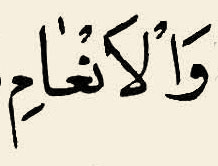 وَالْاَنْعٰامِ